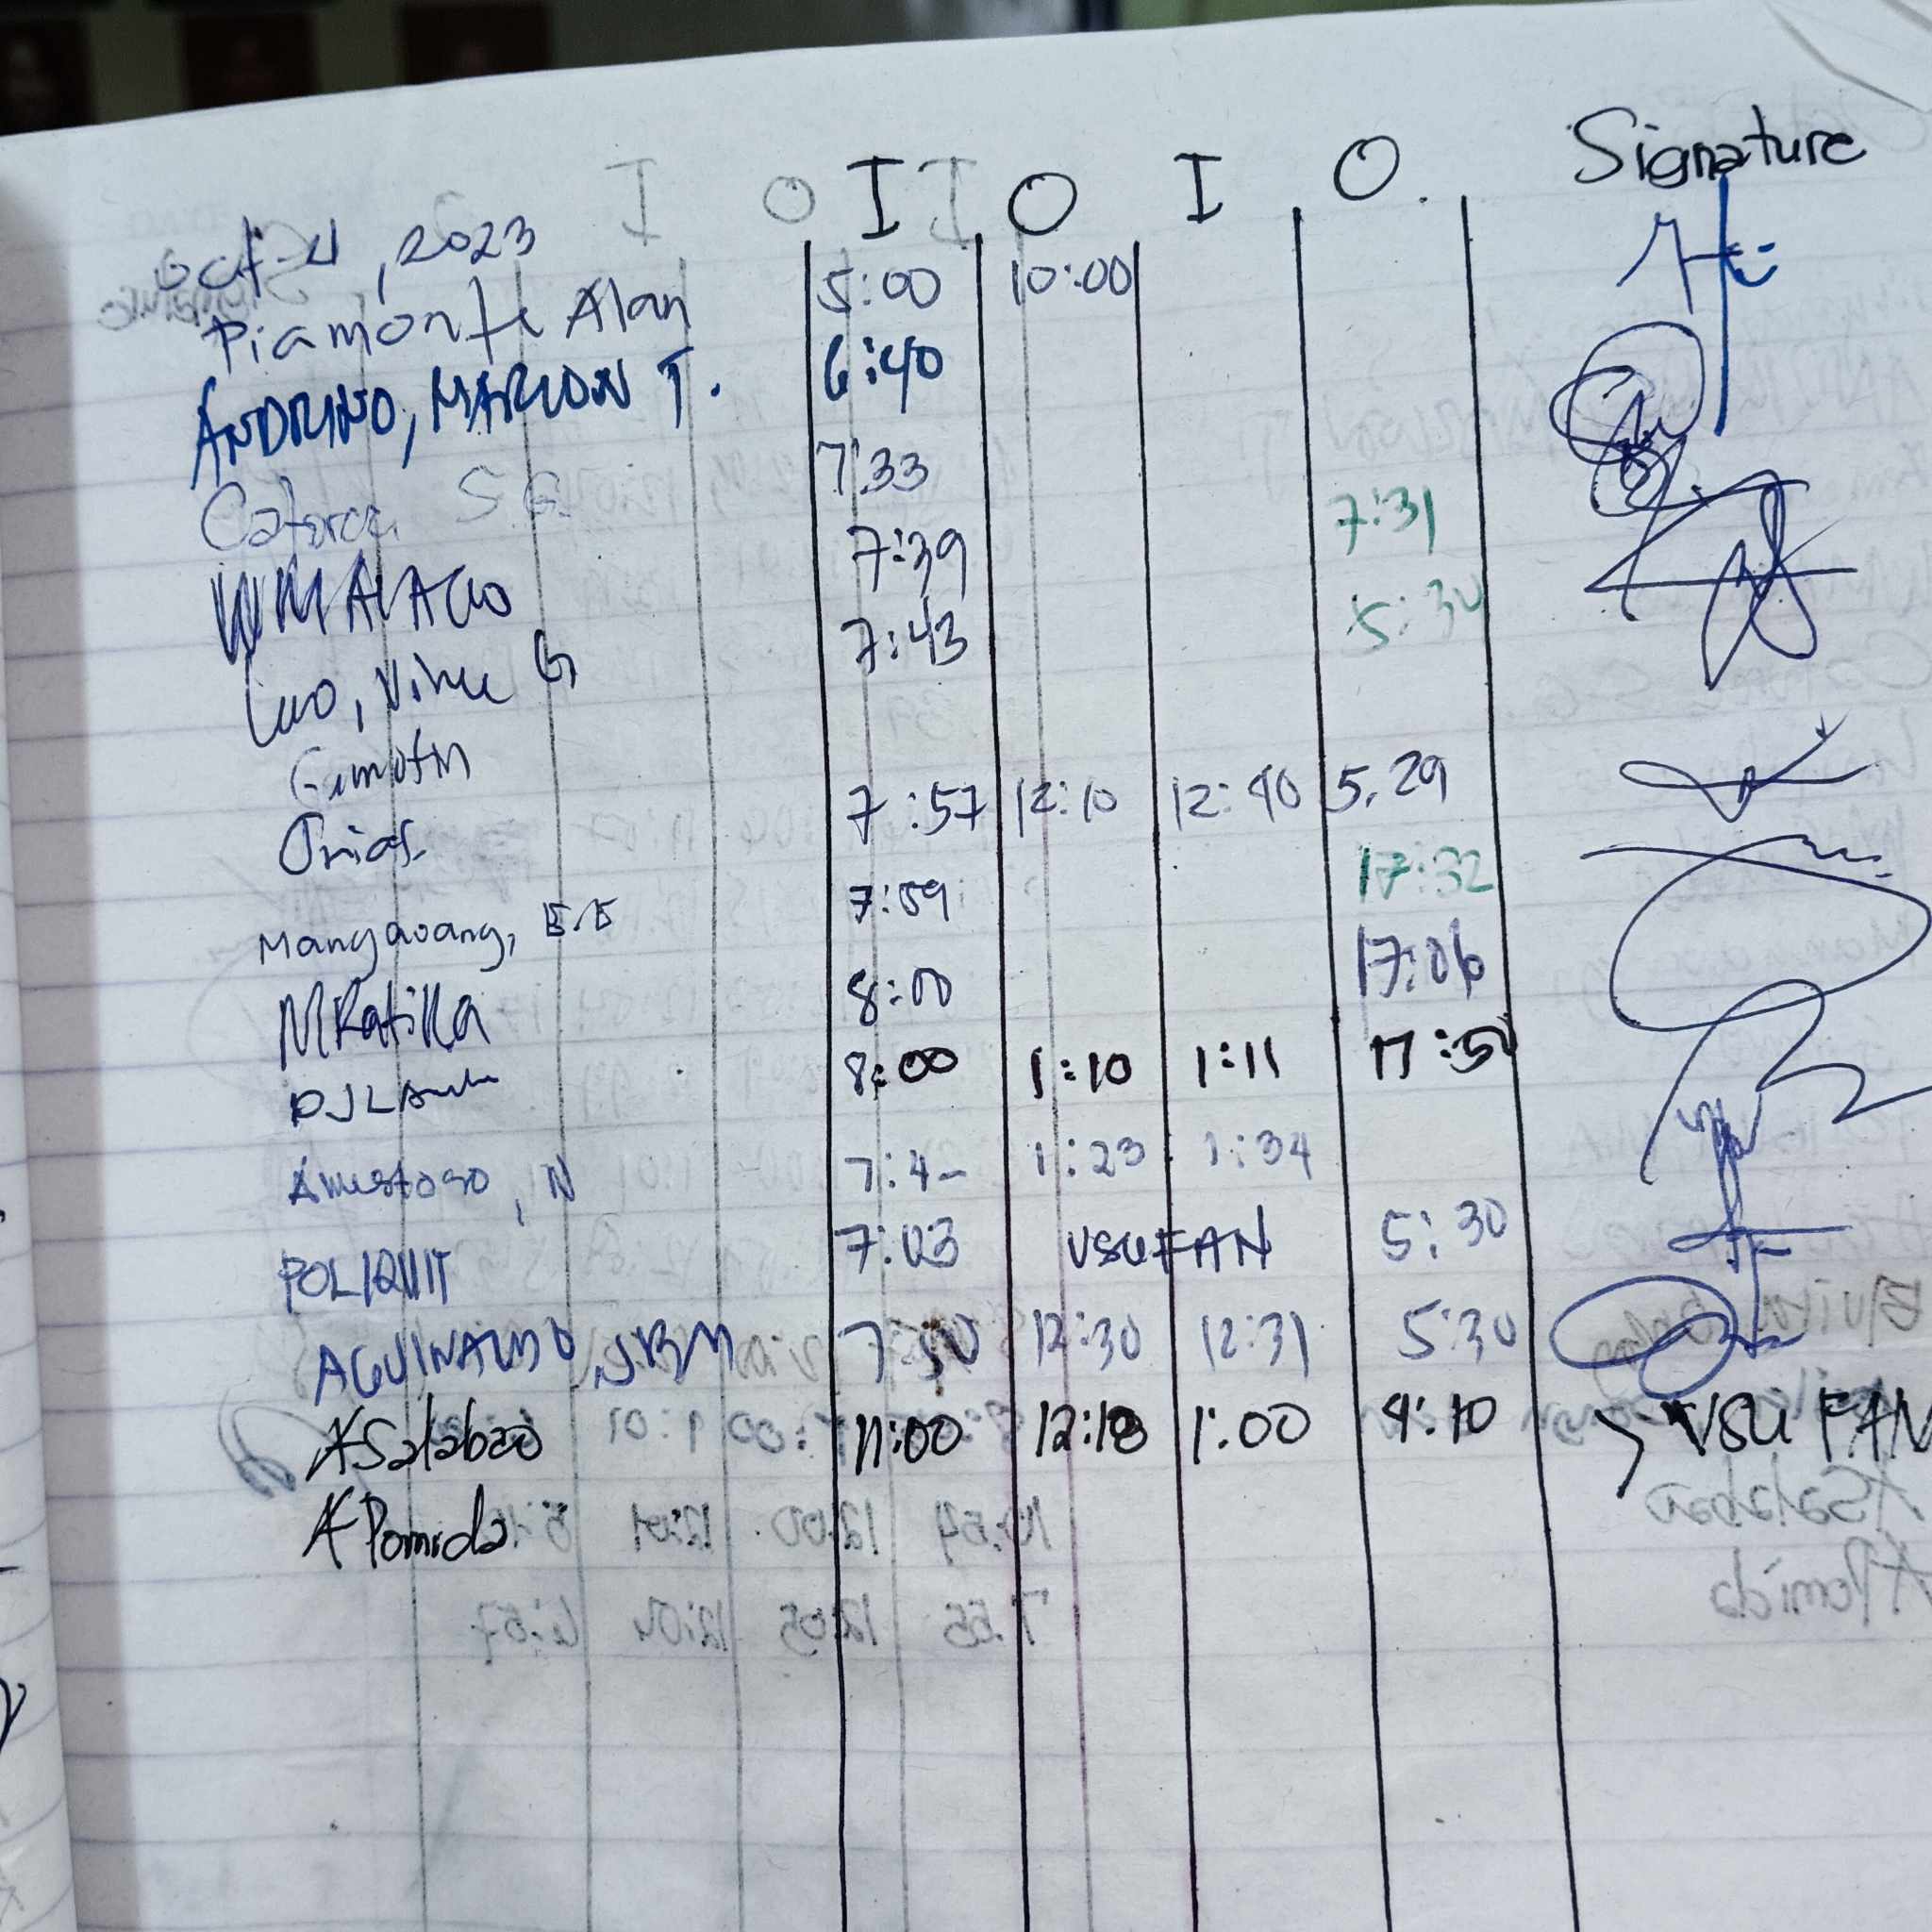 I O I O Signature
Oct-4, 2023
Piamonte Alan 5:00 10:00
ANDRINO, MARLON T. 6:40
Catorce S.G. 7:33
7:39 7:31
7:43 5:30
Gimotin
Orias 7:57 12:10 12:40 5.29
Mangaoang, E.E 7:59 17:32
MRatilla 8:00 17:06
8:00 1:10 1:11 17:50
Amestoso, N 7:4- 1:23 1:34
POLIQUIT 7:03 VSU FAN 5:30
AGUINALDO, JBM 7:50 12:30 12:31 5:30
ASalabao 11:00 12:18 1:00 4:10 > VSU FAN
APomida